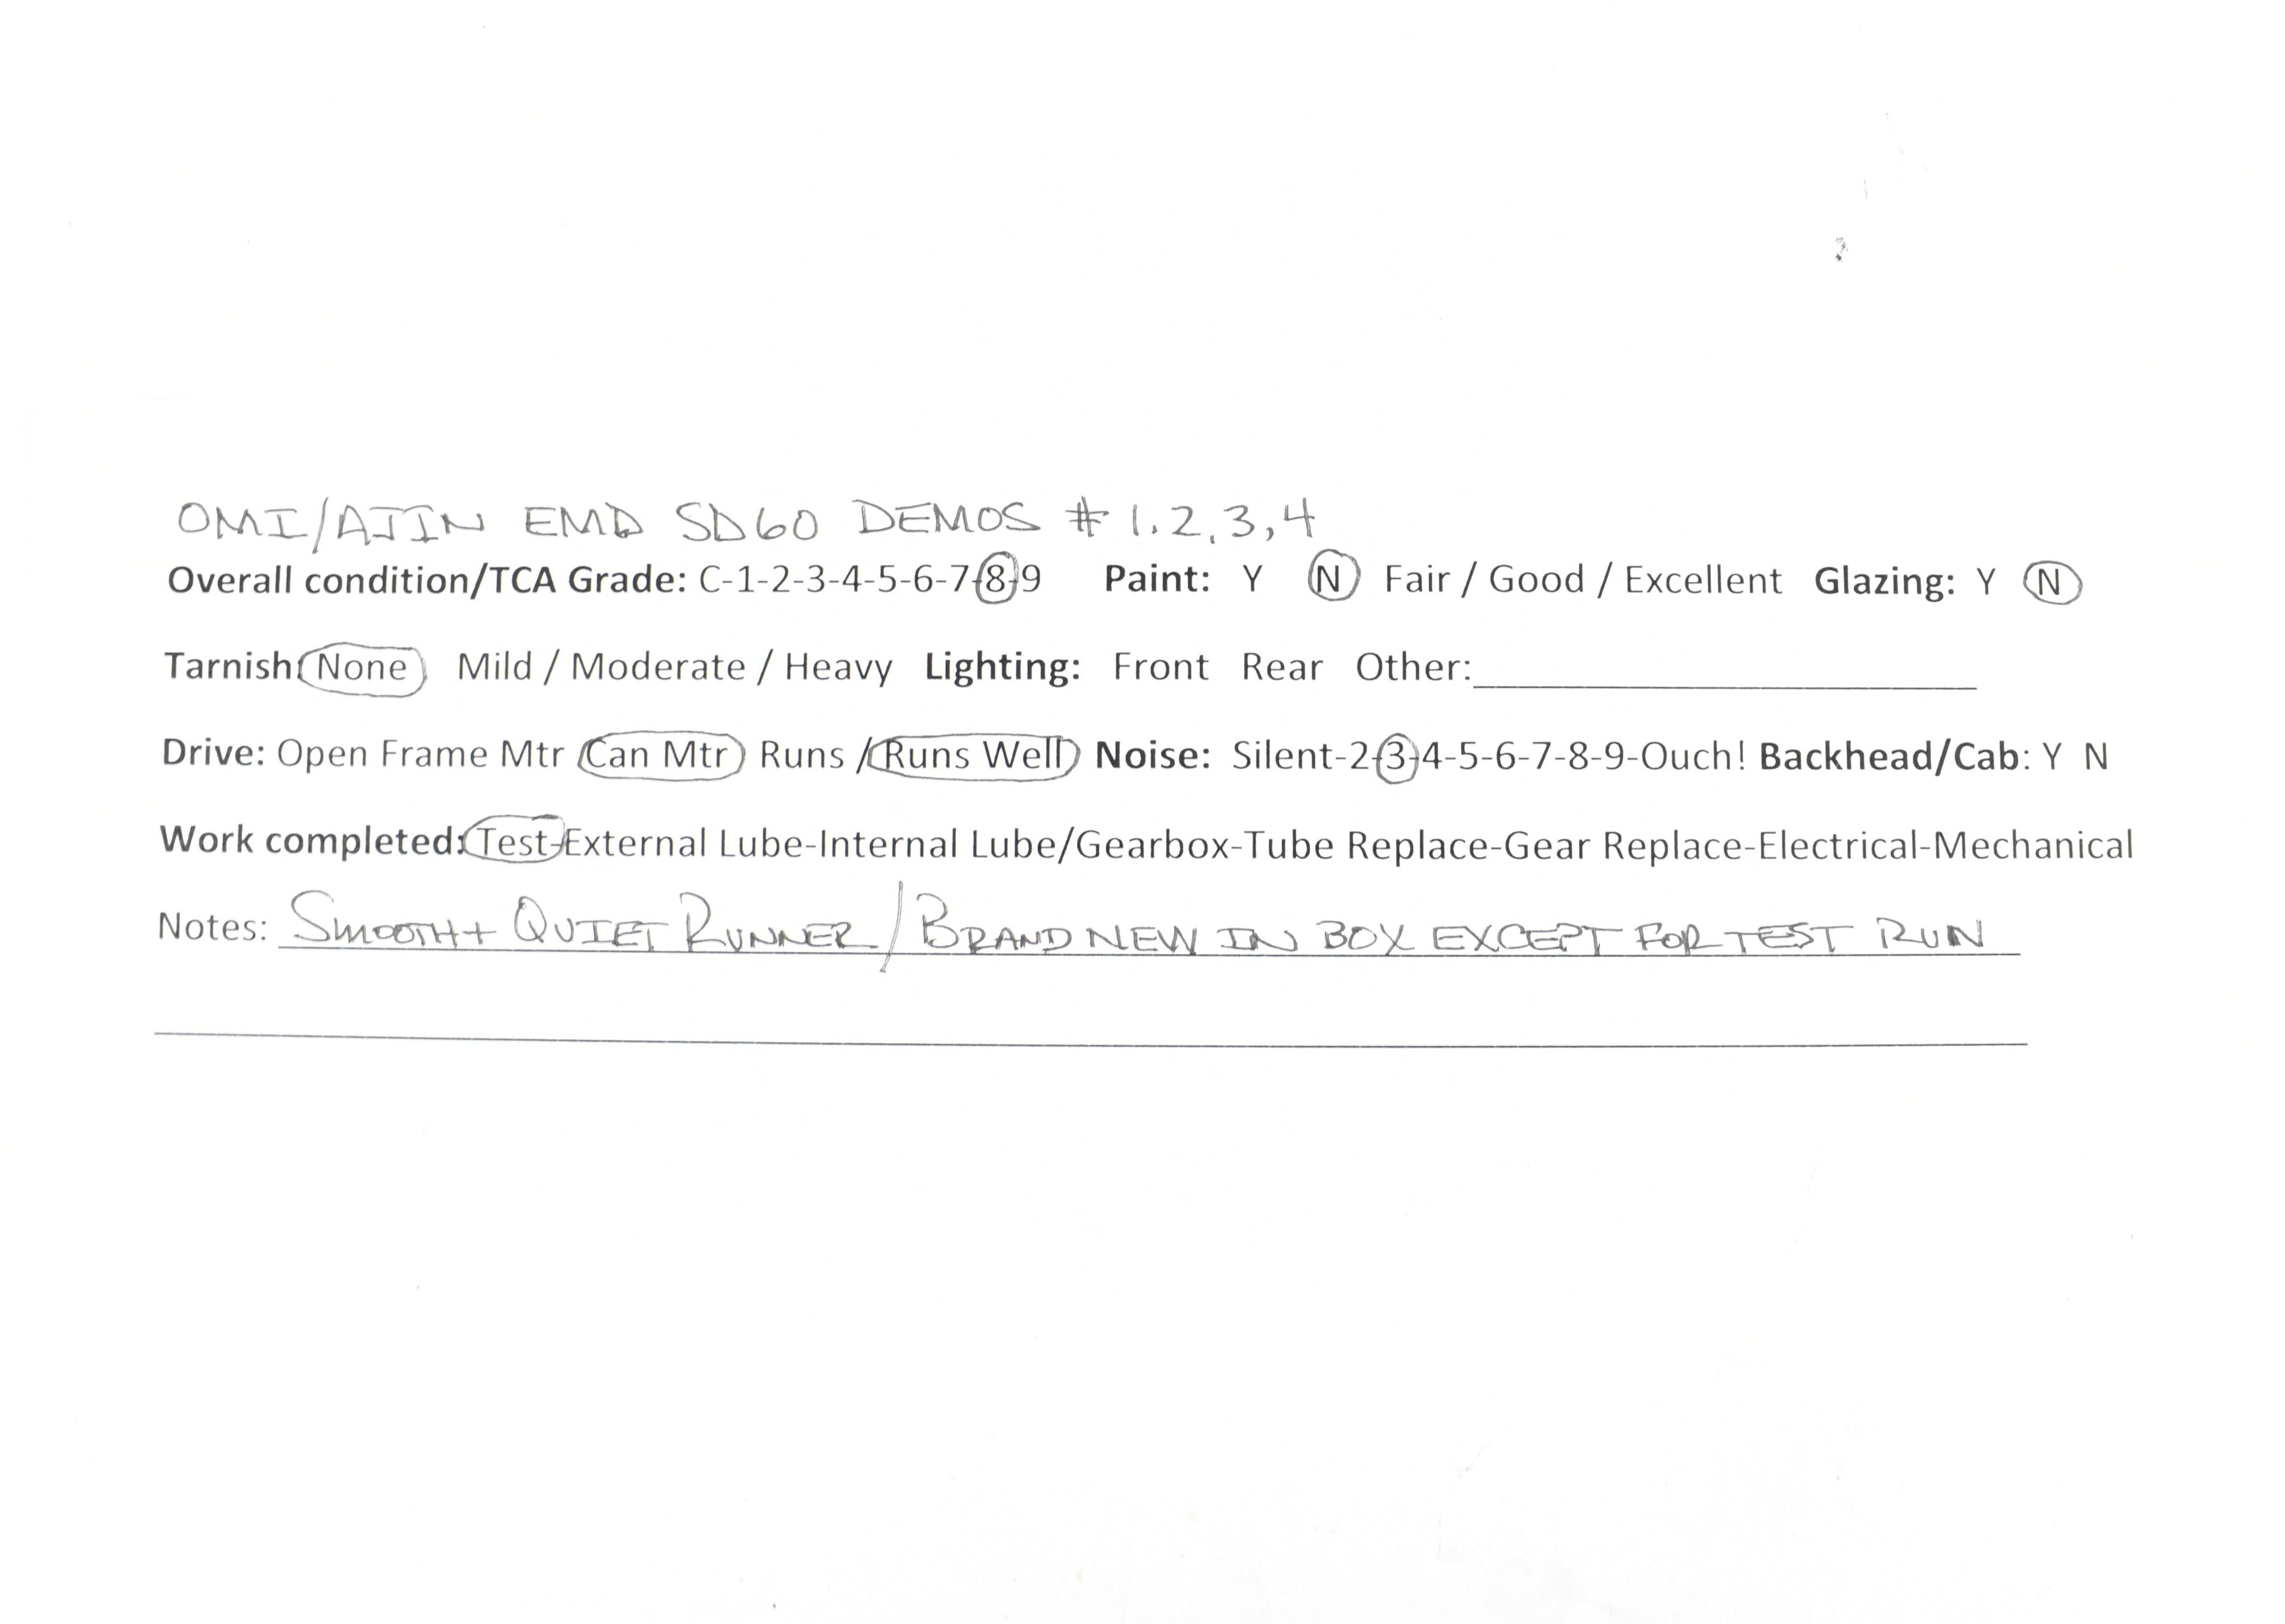 OMI/AJIN EMD SD60 DEMOS # 1,2,3,4
Overall condition/TCA Grade: C-1-2-3-4-5-6-7-8-9 Paint: Y N Fair / Good / Excellent Glazing: Y N
Tarnish: None Mild / Moderate / Heavy Lighting: Front Rear Other:
Drive: Open Frame Mtr Can Mtr Runs / Runs Well Noise: Silent-2-3-4-5-6-7-8-9-Ouch! Backhead/Cab: Y N
Work completed: Test-External Lube-Internal Lube/Gearbox-Tube Replace-Gear Replace-Electrical-Mechanical
Notes: SMOOTH + QUIET RUNNER / BRAND NEW IN BOX EXCEPT FOR TEST RUN